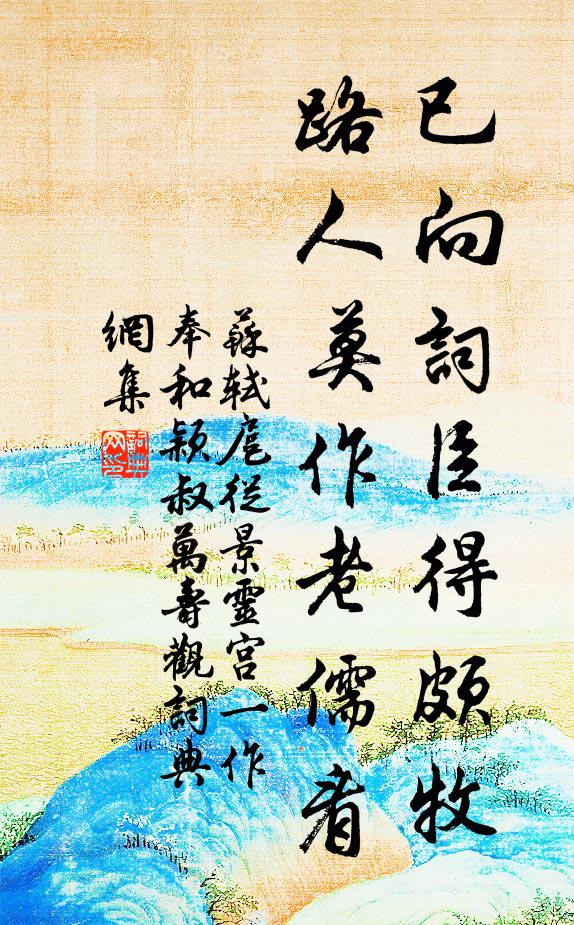 已向詞臣得頗牧
路人莫作老儒看
蘇軾扈從景靈宮一作
奉和穎叔萬壽觀詞典
網集